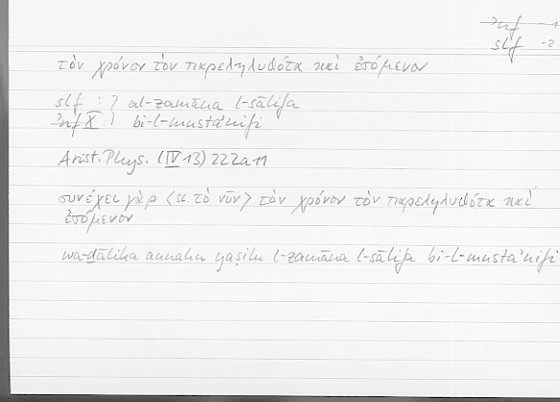 ʾnf – 1
slf – 2
τὸν χρόνον τὸν παρεληλυθότα καὶ ἑπόμενον
slf : } al-zamāna l-sālifa
ʾnf X : } bi-l-mustaʾnifi
Arist. Phys. (IV 13) 222a11
συνέχει γὰρ <sc. τὸ νῦν> τὸν χρόνον τὸν παρεληλυθότα καὶ
ἑπόμενον
wa-ḏālika annahu yaṣilu l-zamāna l-sālifa bi-l-mustaʾnifi